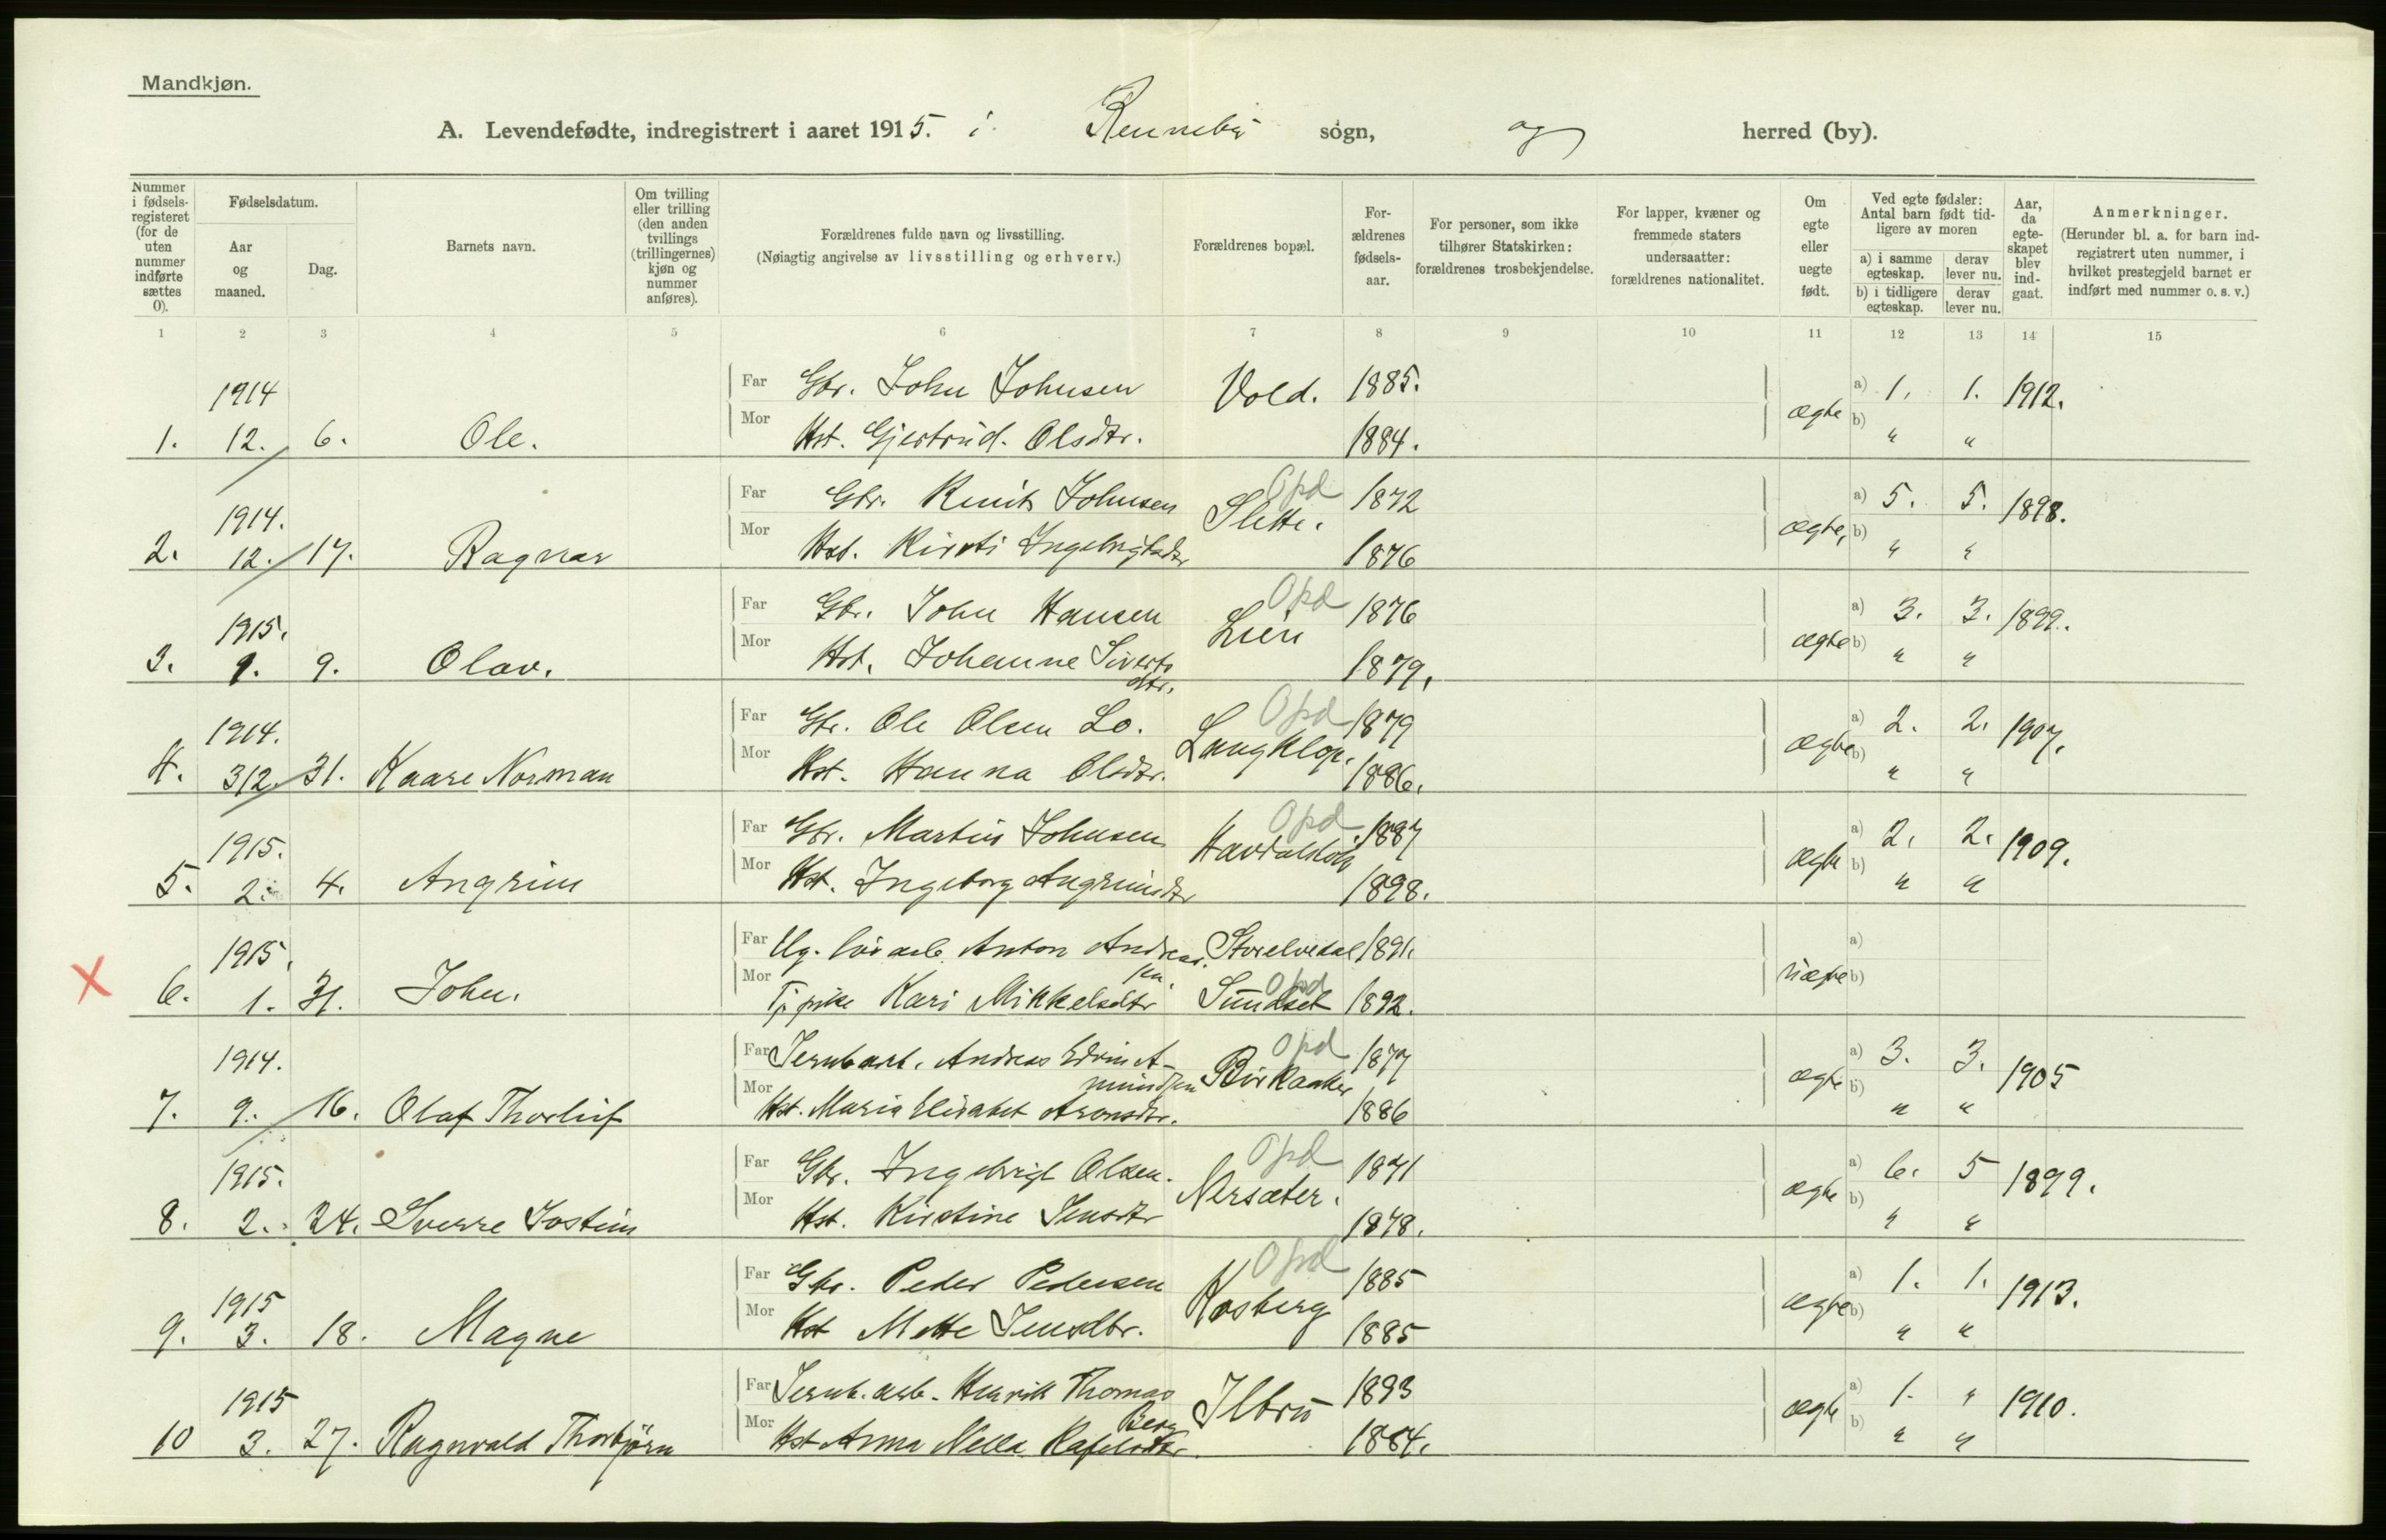 Mandkjøn.
A. Levendefødte, indregistrert i aaret 1915. i Rennebu sogn, og herred (by).
Nummer i fødsels-registeret (for de uten nummer indførte sættes 0).
Fødselsdatum.
Aar og maaned.
Dag.
Barnets navn.
Om tvilling eller trilling (den anden tvillings (trillingernes) kjøn og nummer anføres).
Forældrenes fulde navn og livsstilling.
(Nøiagtig angivelse av livsstilling og erhverv.)
Forældrenes bopæl.
For-ældrenes fødsels-aar.
For personer, som ikke tilhører Statskirken: forældrenes trosbekjendelse.
For lapper, kvæner og fremmede staters undersaatter: forældrenes nationalitet.
Om egte eller uegte født.
Ved egte fødsler: Antal barn født tid-ligere av moren
a) i samme egteskap. derav lever nu.
b) i tidligere egteskap. derav lever nu.
Aar, da egte-skapet blev ind-gaat.
Anmerkninger.
(Herunder bl. a. for barn ind-registrert uten nummer, i hvilket prestegjeld barnet er indført med nummer o. s. v.)
1 2 3 4 5 6 7 8 9 10 11 12 13 14 15
1914 Far Gbr. John Johnsen Vold. 1885. a) 1. 1. 1912.
1. 12. 6. Ole. Mor Hst. Gjertrud. Olsdtr. 1884. ægte b) " "
1914. Far Gbr. Knut Johnsen Slette. Opd 1872 a) 5. 5. 1898.
2. 12. 17. Ragnar Mor Hst. Kirsti Ingebrigtsdtr 1876 ægte, b) " "
1915. Far Gbr. John Hansen Lien Opd 1876 a) 3. 3. 1899.
3. 1. 9. Olav. Mor Hst. Johanne Siverts dtr. 1879. ægte b) " "
1914. Far Gbr. Ole Olsen Lo. Langklop. Opd 1879 a) 2. 2. 1907.
4. 312. 31. Kaare Norman Mor Hst. Hanna Olsdtr. 1886. ægte b) " "
1915. Far Gbr. Martin Johnsen Opd 1887 a) 2. 2. 1909.
5. 2. 4. Angrim Mor Hst. Ingeborg Angrimsdtr 1898. ægte b) " "
1915. Far Ug. Anton Andreas sen. Storelvedal 1891. a)
X 6. 1. 31. John. Mor Tj. pike Kari Mikkelsdtr Sundset Opd 1892. uægte b)
1914. Far Jernb.arb. Andreas Edvin A-mundsen Birkaaker Opd 1877 a) 3. 3. 1905
7. 9. 16. Olaf Thorleif Mor Hst. Maria Elisabet Aronsdtr. 1886 ægte b) " "
1915. Far Gbr. Ingebrigt Olsen. Nersæter. Opd 1871 a) 6. 5 1899.
8. 2. 24. Sverre Jostein Mor Hst. Kirstine Jensdtr 1878. ægte b) " "
1915 Far Gbr. Peder Pedersen Kosberg Opd 1885 a) 1. 1. 1913.
9. 3. 18. Magne Mor Hst Mette Jensdtr. 1885 ægte b) " "
1915 Far Jernb. arb. Henrik Thomas Berg Ilbru 1893 a) 1. " 1910.
10 3. 27. Ragnvald Thorbjørn Mor Hst Anna Nella Rafelsdtr. 1884. ægte b) " "